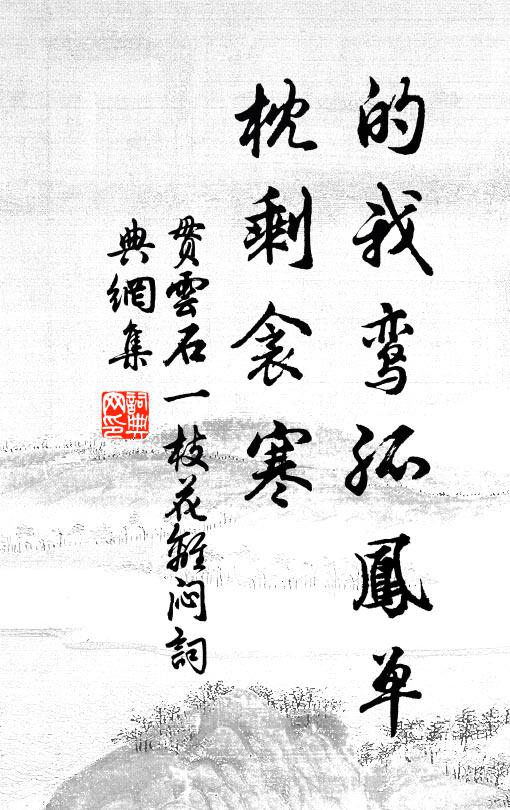 的我鸾孤鳳单
枕剩衾寒
贯雲石一枝花離闷詞
典網集
詞典网印